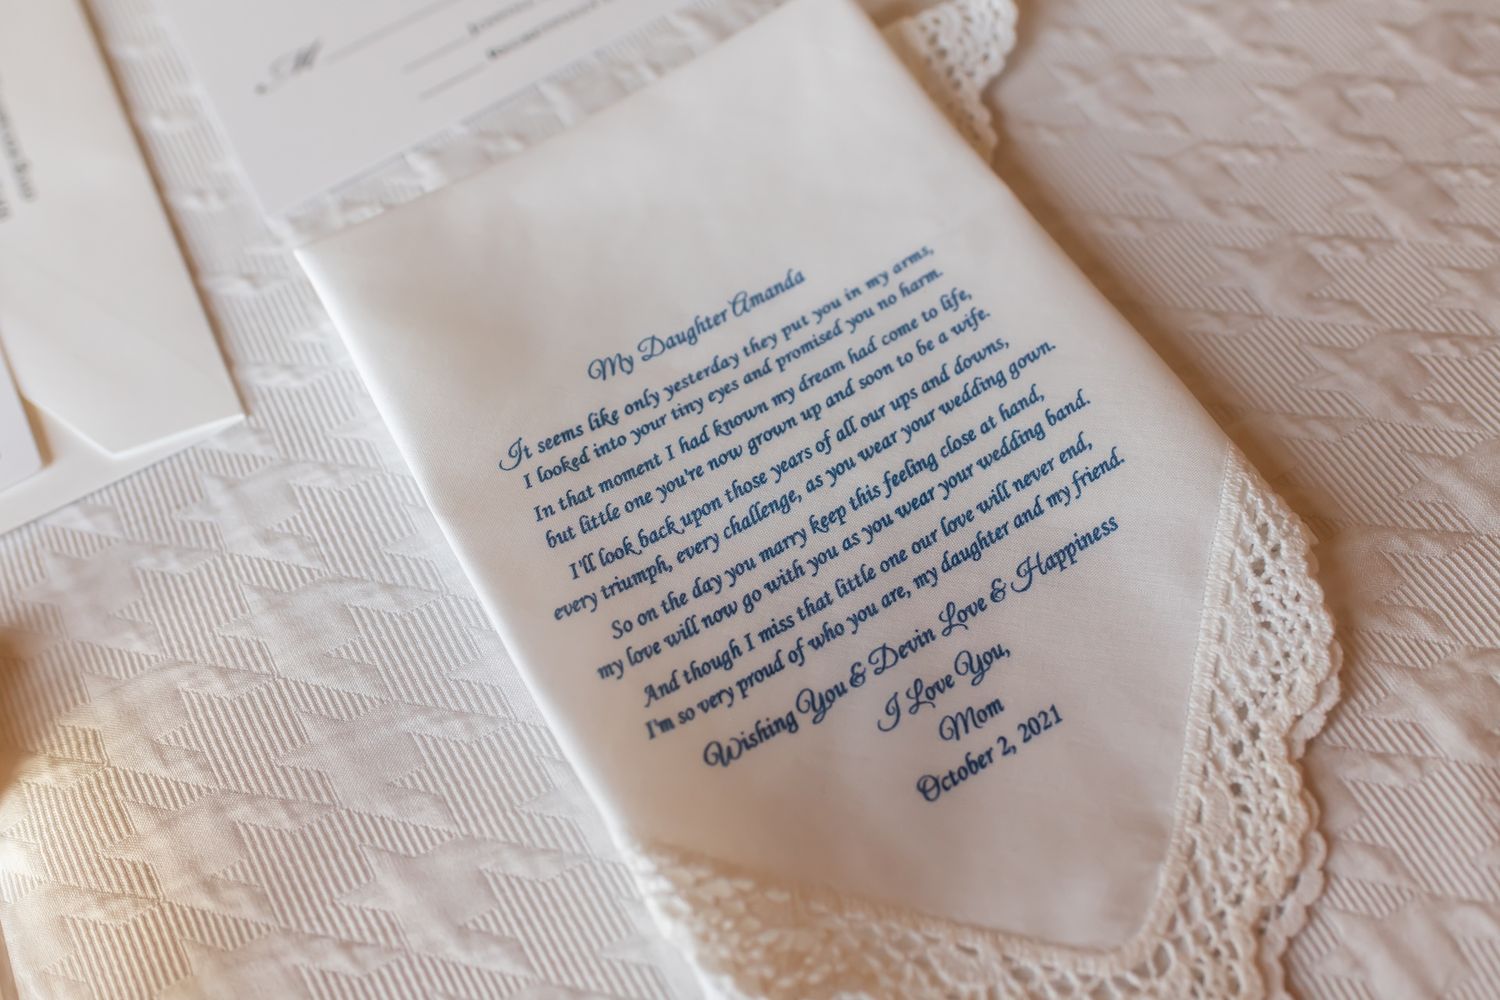 M
My Daughter Amanda
It seems like only yesterday they put you in my arms,
I looked into your tiny eyes and promised you no harm.
In that moment I had known my dream had come to life,
but little one you're now grown up and soon to be a wife.
I'll look back upon those years of all our ups and downs,
every triumph, every challenge, as you wear your wedding gown.
So on the day you marry keep this feeling close at hand,
my love will now go with you as you wear your wedding band.
And though I miss that little one our love will never end,
I'm so very proud of who you are, my daughter and my friend.
Wishing You & Devin Love & Happiness
I Love You,
Mom
October 2, 2021